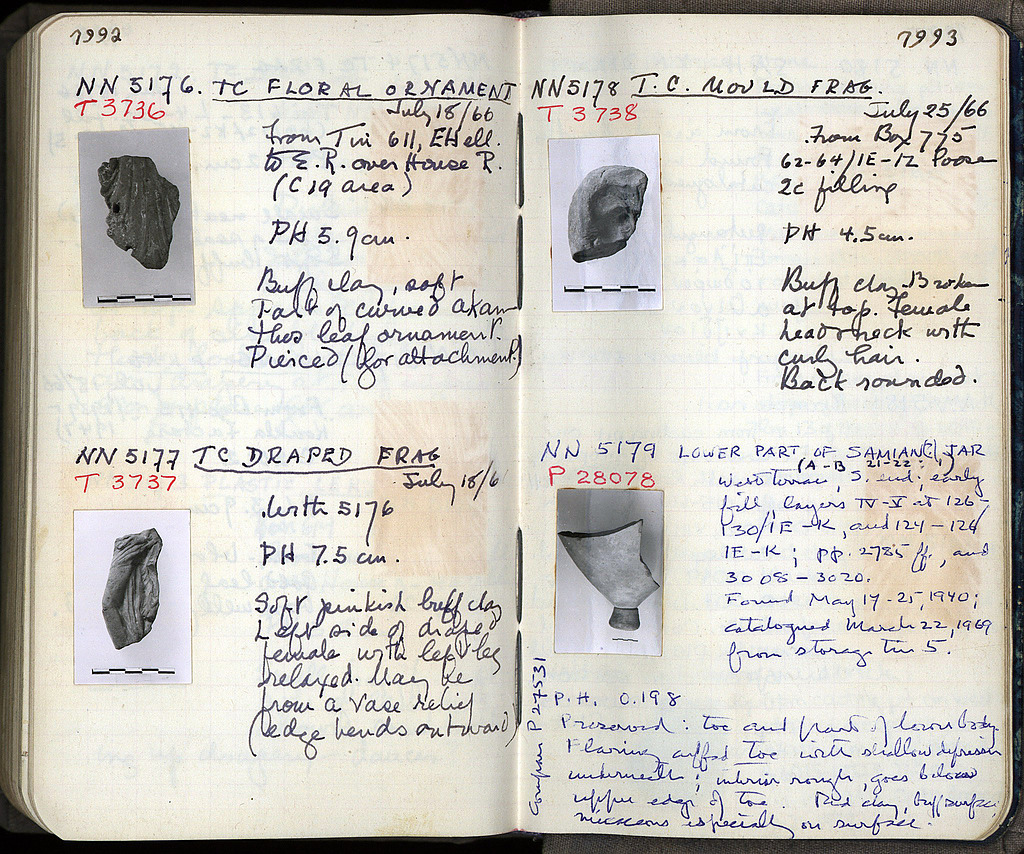 7992
NN 5176. TC FLORAL ORNAMENT
T 3736
July 18/66
from Tin 611, E Hell.
to E.R. over House R.
(C 19 area)
PH 5.9 cm.
Buff clay, soft
Part of curved akan
thus leaf ornament.
Pierced (for attachment.)
NN 5177 TC DRAPED FRAG
T 3737
July 18/6
With 5176
PH 7.5 cm.
Soft pinkish buff clay
Left side of draped
female with left leg
relaxed. May be
from a vase relief
(edge bends outward)
7993
NN 5178 T.C. MOULD FRAG.
T 3738
July 25/66
From Box 775
62-64/IE-IZ Loose
2c filling
PH 4.5 cm.
Buff clay. Broken
at top. Female
head & neck with
curly hair.
Back rounded.
NN 5179 LOWER PART OF SAMIAN(?) JAR
P 28078
(A-B 21-22:1)
West terrace, S. end: early
fill, layers IV-V at 126-
130/IE-K, and 124-126
IE-K; pp. 2785 ff., and
3008-3020.
Found May 17-25, 1940;
catalogued March 22, 1969
from storage tin 5.
Compare P 27531
P.H. 0.198
Preserved: toe and part of lower body
Flaring cuffed toe with shallow depression
underneath; interior rough, goes below
upper edge of toe. Red clay, buff surface,
micaceous especially on surface.